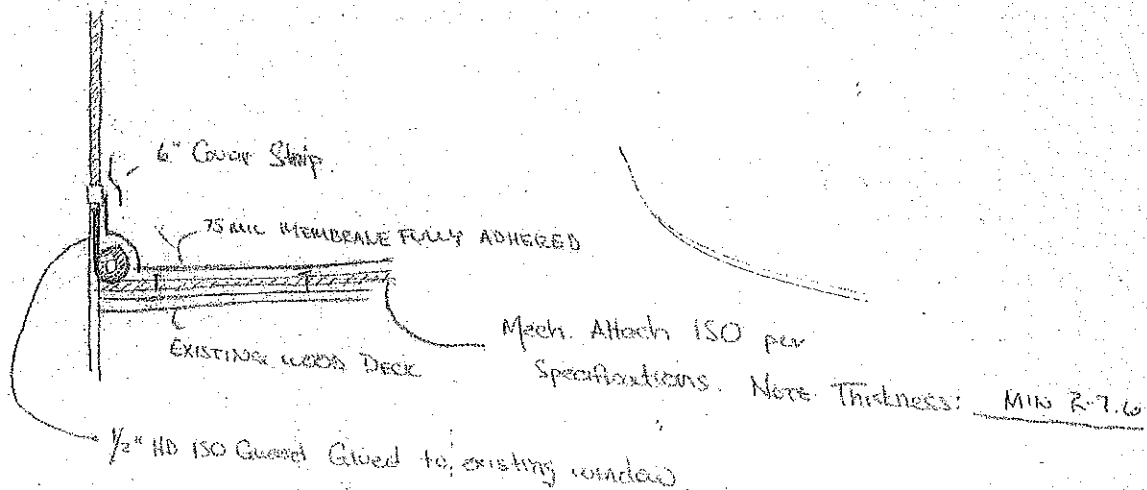 6" Cover Strip.
75 MIL MEMBRANE FULLY ADHERED
EXISTING WOOD DECK
Mech. Attach ISO per
Specifications. Note Thickness: MIN R-7.6
1/2" HD ISO Guard Glued to existing window